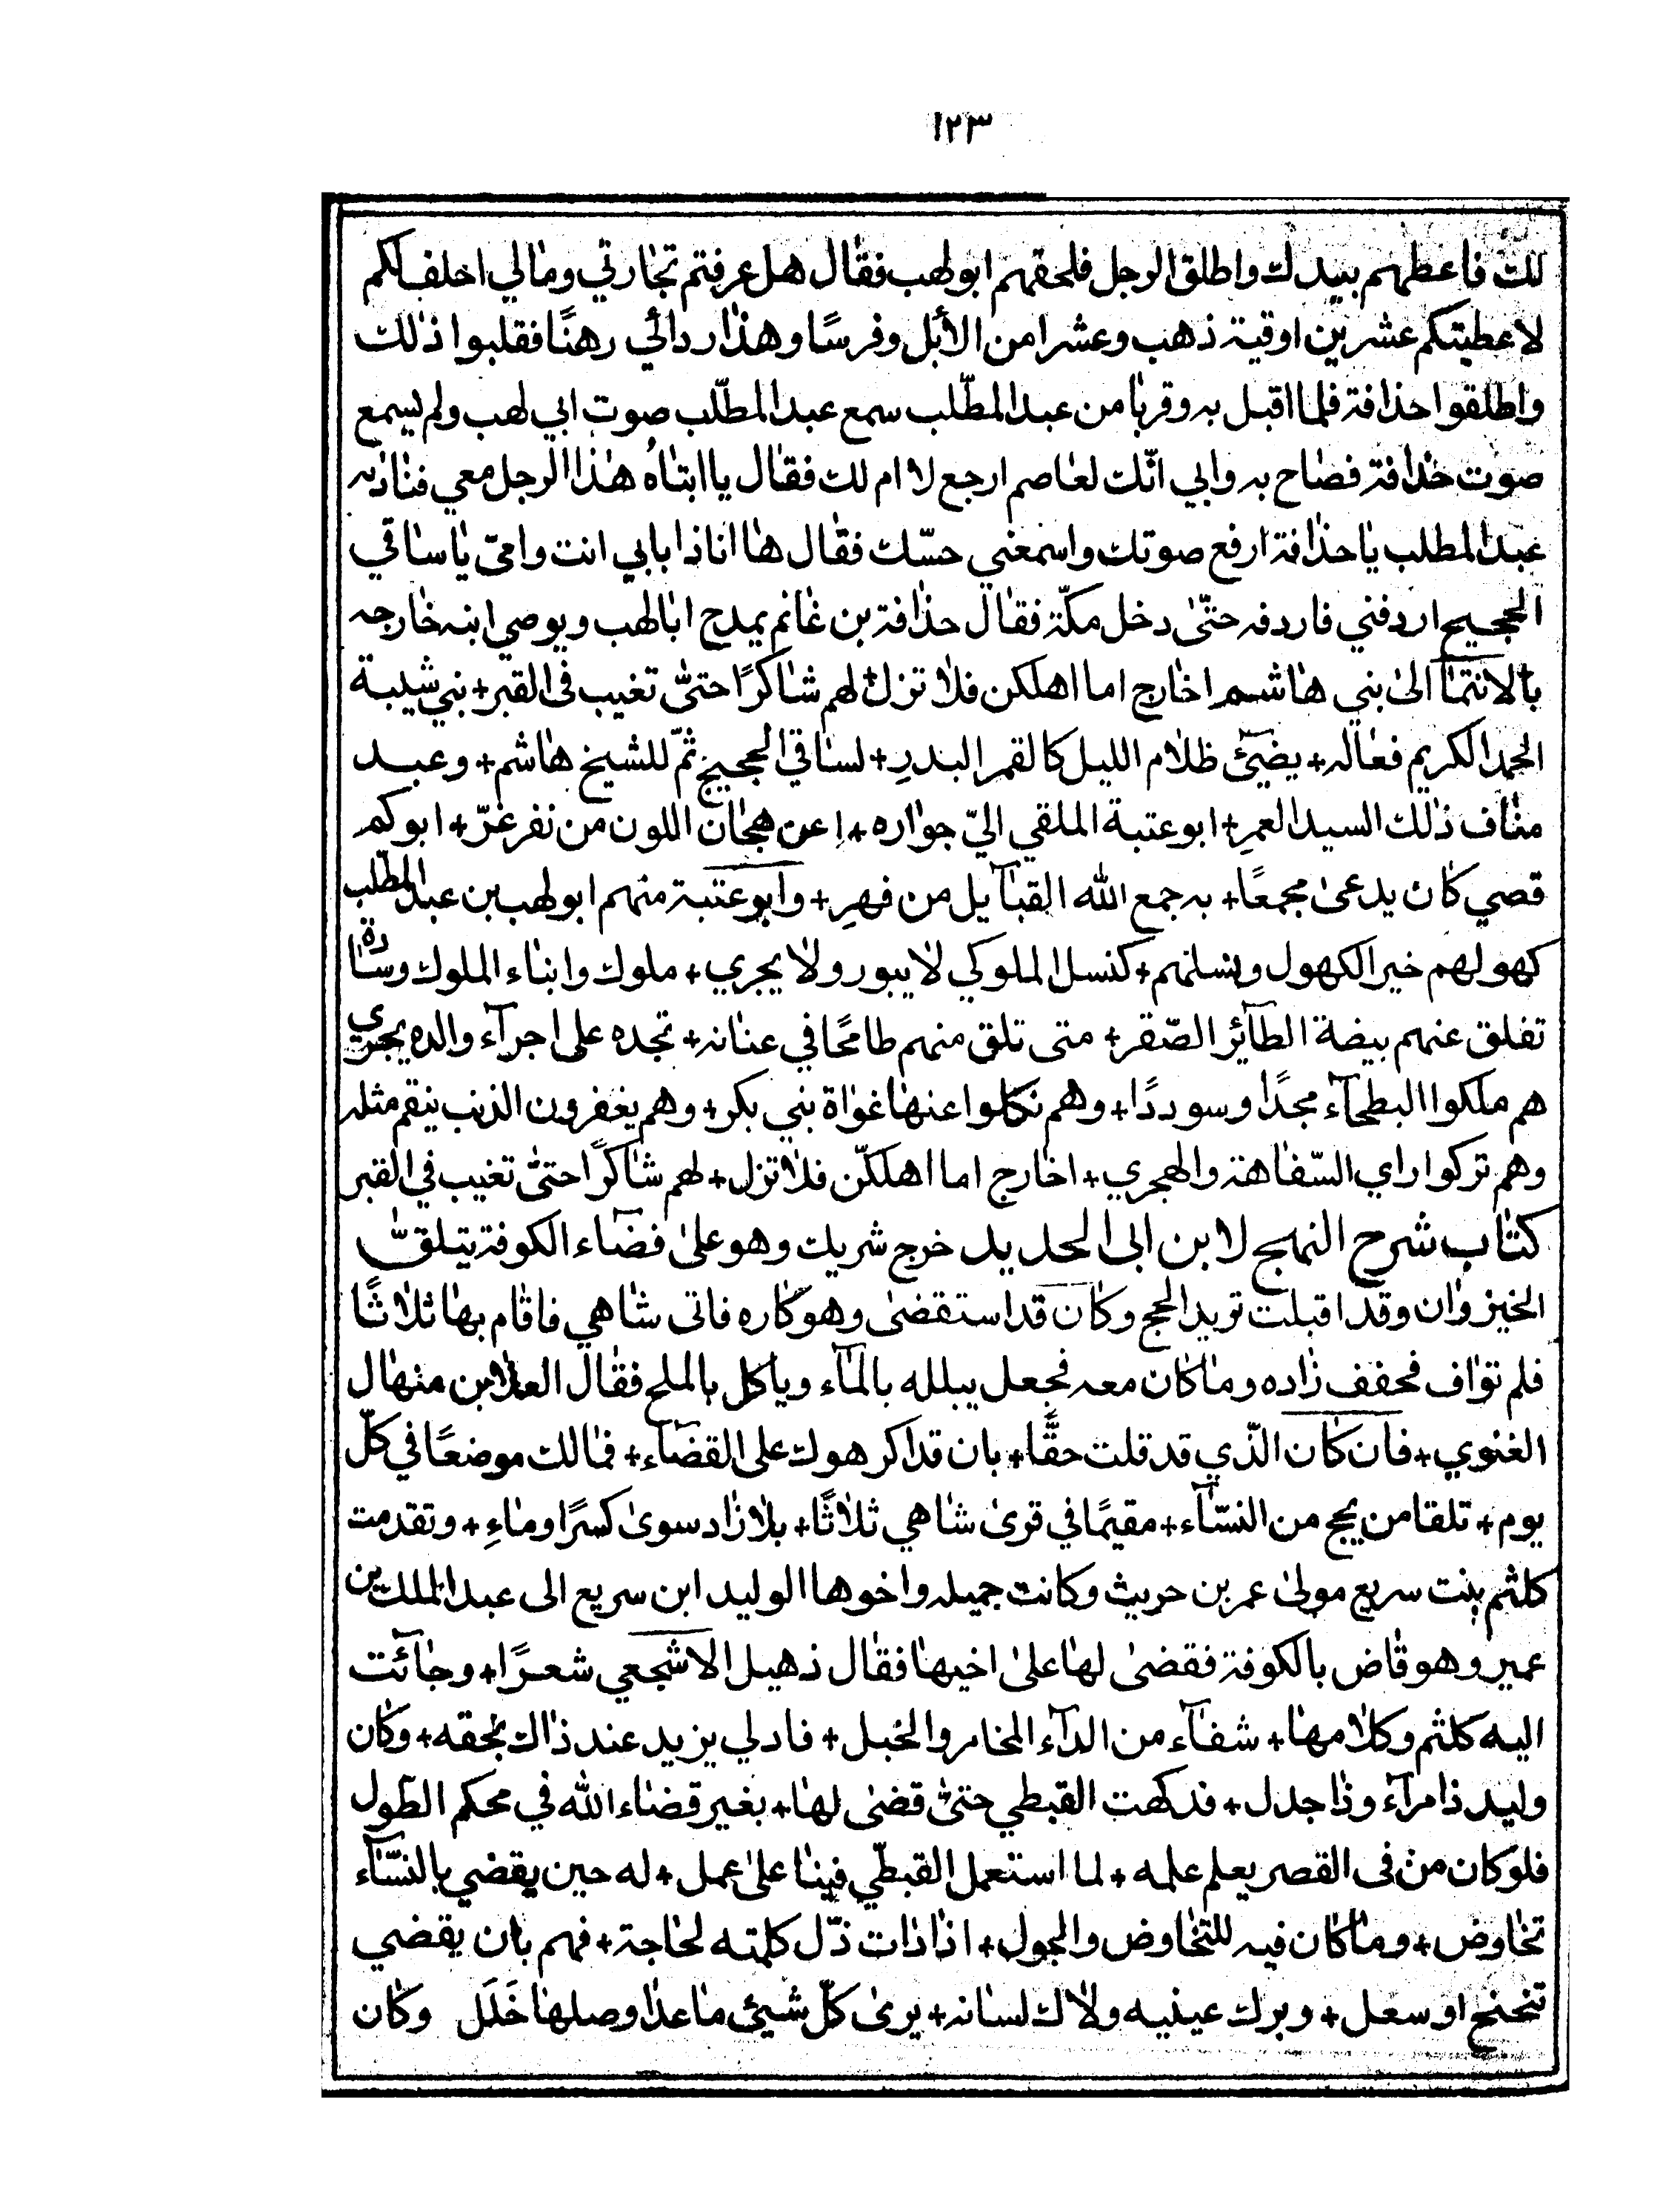 ١٢٣
لك فاعطهم بيدك واطلق الرجل فلحقهم ابولهب فقال هل عرفتم تجارتي ومالي احلف لكم
لاعطيتكم عشرين اوقية ذهب وعشرا من الأبل وفرسًا وهذا ردائي رهنًا فقلبوا ذلك
واطلقوا حذافة فلما اقبل به وقربا من عبد المطّلب سمع عبد المطّلب صوت ابي لهب ولم يسمع
صوت حذافة فصاح به وابي انّك لعاصم ارجع لا ام لك فقال يا ابتاهُ هذا الرجل معي فناداه
عبد المطلب يا حذافة ارفع صوتك واسمعني حسّك فقال ها انا ذا بابي انت وامّي يا ساقي
الحجيج اردفني فاردفه حتّى دخل مكّة فقال حذافة بن غانم يمدح ابا لهب ويوصي ابنه خارجه
بالانتمآ الى بني هاشم اخارج اما اهلكن فلا تزل + لهم شاكرًا حتىّ تغيب فى القبر + بني شيبة
الحمد الكريم فعاله + يضيئ ظلام الليل كالقمر البدرِ + لساقي الحجيج ثمّ للشيخ هاشم + وعبد
مناف ذلك السيد العمرِ + ابو عتبة الملقي اليّ جواره + اعن هجان اللون من نفر غرّ + ابوكم
قصي كان يدعى مجمعًا + به جمع الله القبآيل من فهرِ + وابو عتبة منهم ابو لهب بن عبد المطّلب
كهولهم خير الكهول ونسلهم + كنسل الملوكي لا يبور ولا يجري + ملوك وابناء الملوك وسادة
تفلق عنهم بيضة الطآئر الصّقر + متى تلق منهم طامحًا في عنانه + تجده على اجرآء والده يجري
هم ملكوا البطحآء مجدًا وسوددًا + وهم نكلوا عنها غواة بني بكر + وهم يغفرون الذنب ينقم مثله
وهم تركوا راي السّفاهة والهجري + اخارج اما اهلكنّ فلا تزل + لهم شاكرًا حتىّ تغيب في القبر
كتاب شرح النهج لابن ابى الحديد خرج شريك وهو على قضآء الكوفة يتلقّى
الخيزوان وقد اقبلت تريد الحج وكان قد استقضى وهو كاره فاتى شاهي فاقام بها ثلاثًا
فلم تواف فحفف زاده وما كان معه فجعل يبلله بالمآء وياكل بالملح فقال العلا بن منهال
الغنوي + فان كان الّذي قد قلت حقًّا + بان قد اكرهوك على القضآء + فمالك موضعًا في كلّ
يوم + تلقا من يحج من النسّآء + مقيمًا في قرى شاهي ثلاثًا + بلا زاد سوى كسرًا وماءِ + وتقدمت
كلثم بنت سريع مولى عمر بن حريث وكانت جميله واخوها الوليد ابن سريع الى عبد الملك بن
عمير وهو قاض بالكوفة فقضى لها على اخيها فقال ذهيل الاشجعي شعرًا + وجائت
اليه كلثم وكلامها + شفآء من الدآء المخامر والخبل + فادلي يزيد عند ذاك بحقه + وكان
وليد ذا مرآء وذا جدل + فدلهت القبطي حتىّ قضى لها + بغير قضاء الله في محكم الطّول
فلو كان من فى القصر يعلم علمه + لما استعمل القبطّي فينا على عمل + له حين يقضي بالنسّآء
تخاوض + وما كان فيه للتخاوض والجول + اذا ذات ذّل كلمته لحاجة + فهم بان يقضي
تنحنح او سعل + وبرك عينيه ولاك لسانه + يرى كلّ شيئ ما عدا وصلها خَلَل وكان